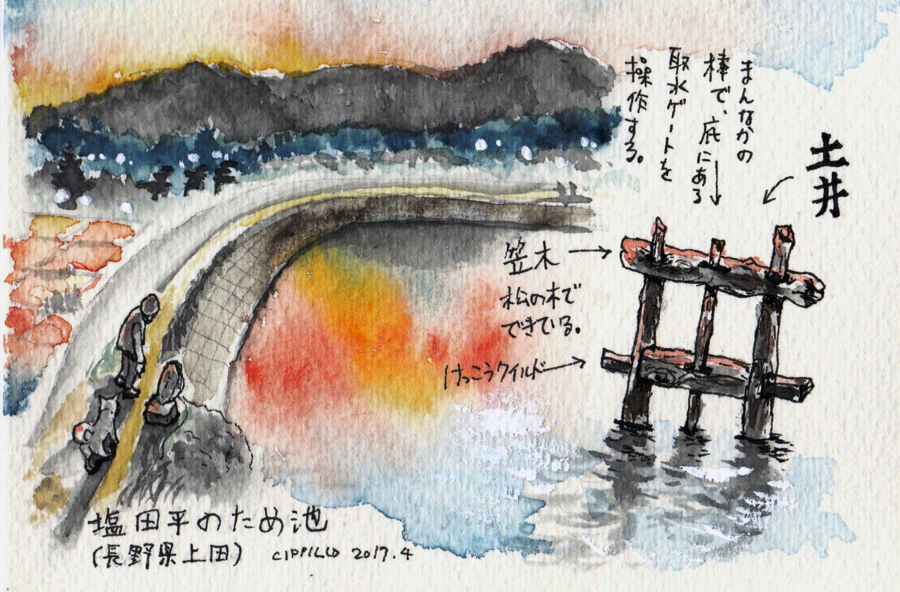 土井
まんなかの
棒で、底にある
取水ゲートを
操作する。
笠木
松の木で
できている。
けっこうワイルド
塩田平のため池
(長野県上田)
CIPPILLO 2017.4